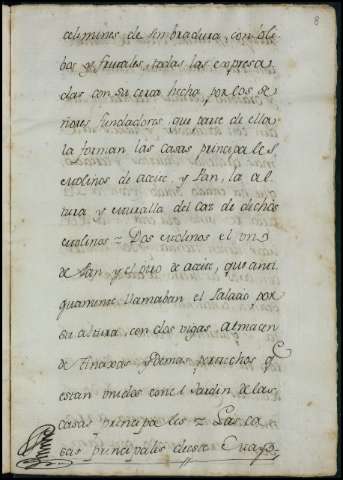 8
celemines de sembradura, con oli
bos y frutales, todas las expresa
das con su cerca hecha por los se
ñores fundadores, que parte de ella
la forman las casas principales,
Molinos de aceite, y Pan, la al
tura y muralla del caz de dichos
Molinos = Dos Molinos el uno
de Pan y el otro de aceite, que anti
guamente llamaban el Palacio, por
su altura, con dos vigas, almacen
de tinaxas y demas pertrechos q.e
estan unidos con el Jardin de las
casas principales = Las ca
sas principales de este Mayo